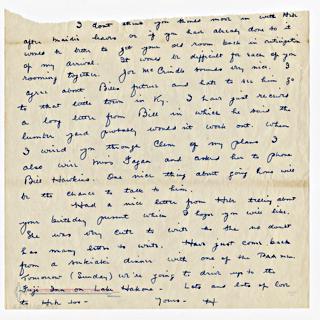 I don't think you should move in with Hik
after Maidi leaves or if you had already done so it
would be better to get your old room back in anticipation
of my arrival. It would be difficult for each of you
rooming together. Joe McCrido sounds very nice. I
agree about Bill's future and hate to see him go
to that little town in Ky. I have just received
a long letter from Bill in which he said the
lumber yard probably would not work out. When
I wired you through Clem of my plans I
also wired Miss Fagan and asked her to phone
Bill Hawkins. One nice thing about going home will
be the chance to talk to him.
Had a nice letter from Hik telling about
your birthday present which I hope you will like.
She was very cute to write as she no doubt
has many letters to write. Have just come back
from a sukiaki dinner with one of the PAA men.
Tomorrow (Sunday) we're going to drive up to the
Fuji Inn on Lake Hakone - Lots and lots of love
to Hik too - Yours - H